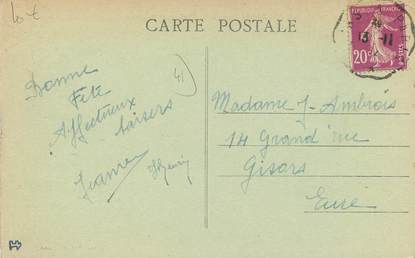 10 €
CARTE POSTALE
RÉPUBLIQUE FRANÇAISE
20c
POSTES
13 - 11
41
Bonne
Fête
Affectueux
baisers
Jeanne
Henri
Madame J. Ambrois
14 Grand'rue
Gisors
Eure